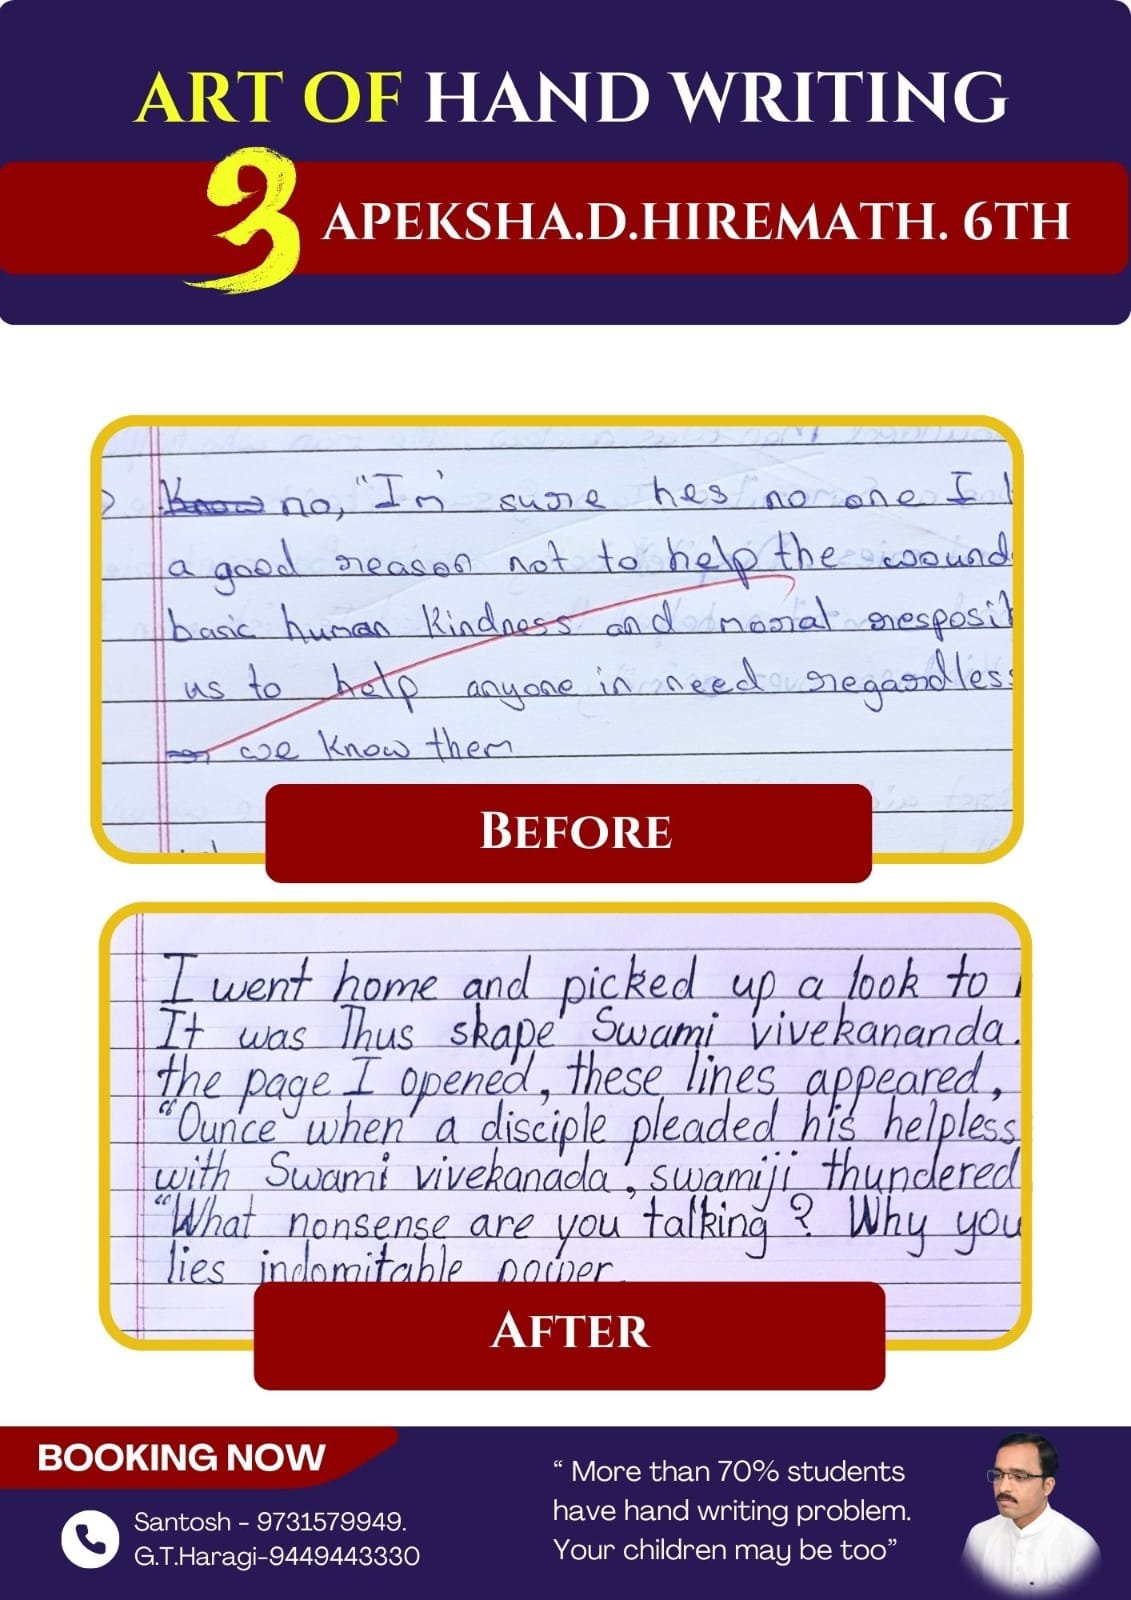 ART OF HAND WRITING
3 APEKSHA.D.HIREMATH. 6TH
no, "Im' sure hes no one I
a good reason not to help the wound
basic human kindness and moral resposi
us to help anyone in need regardless
we know them
BEFORE
I went home and picked up a look to
It was Thus skape Swami vivekananda.
the page I opened, these lines appeared,
"Ounce when a disciple pleaded his helpless
with Swami vivekanada, swamiji thundered
"What nonsense are you talking ? Why you
lies indomitable power
AFTER
BOOKING NOW
Santosh - 9731579949.
G.T.Haragi-9449443330
“ More than 70% students
have hand writing problem.
Your children may be too”